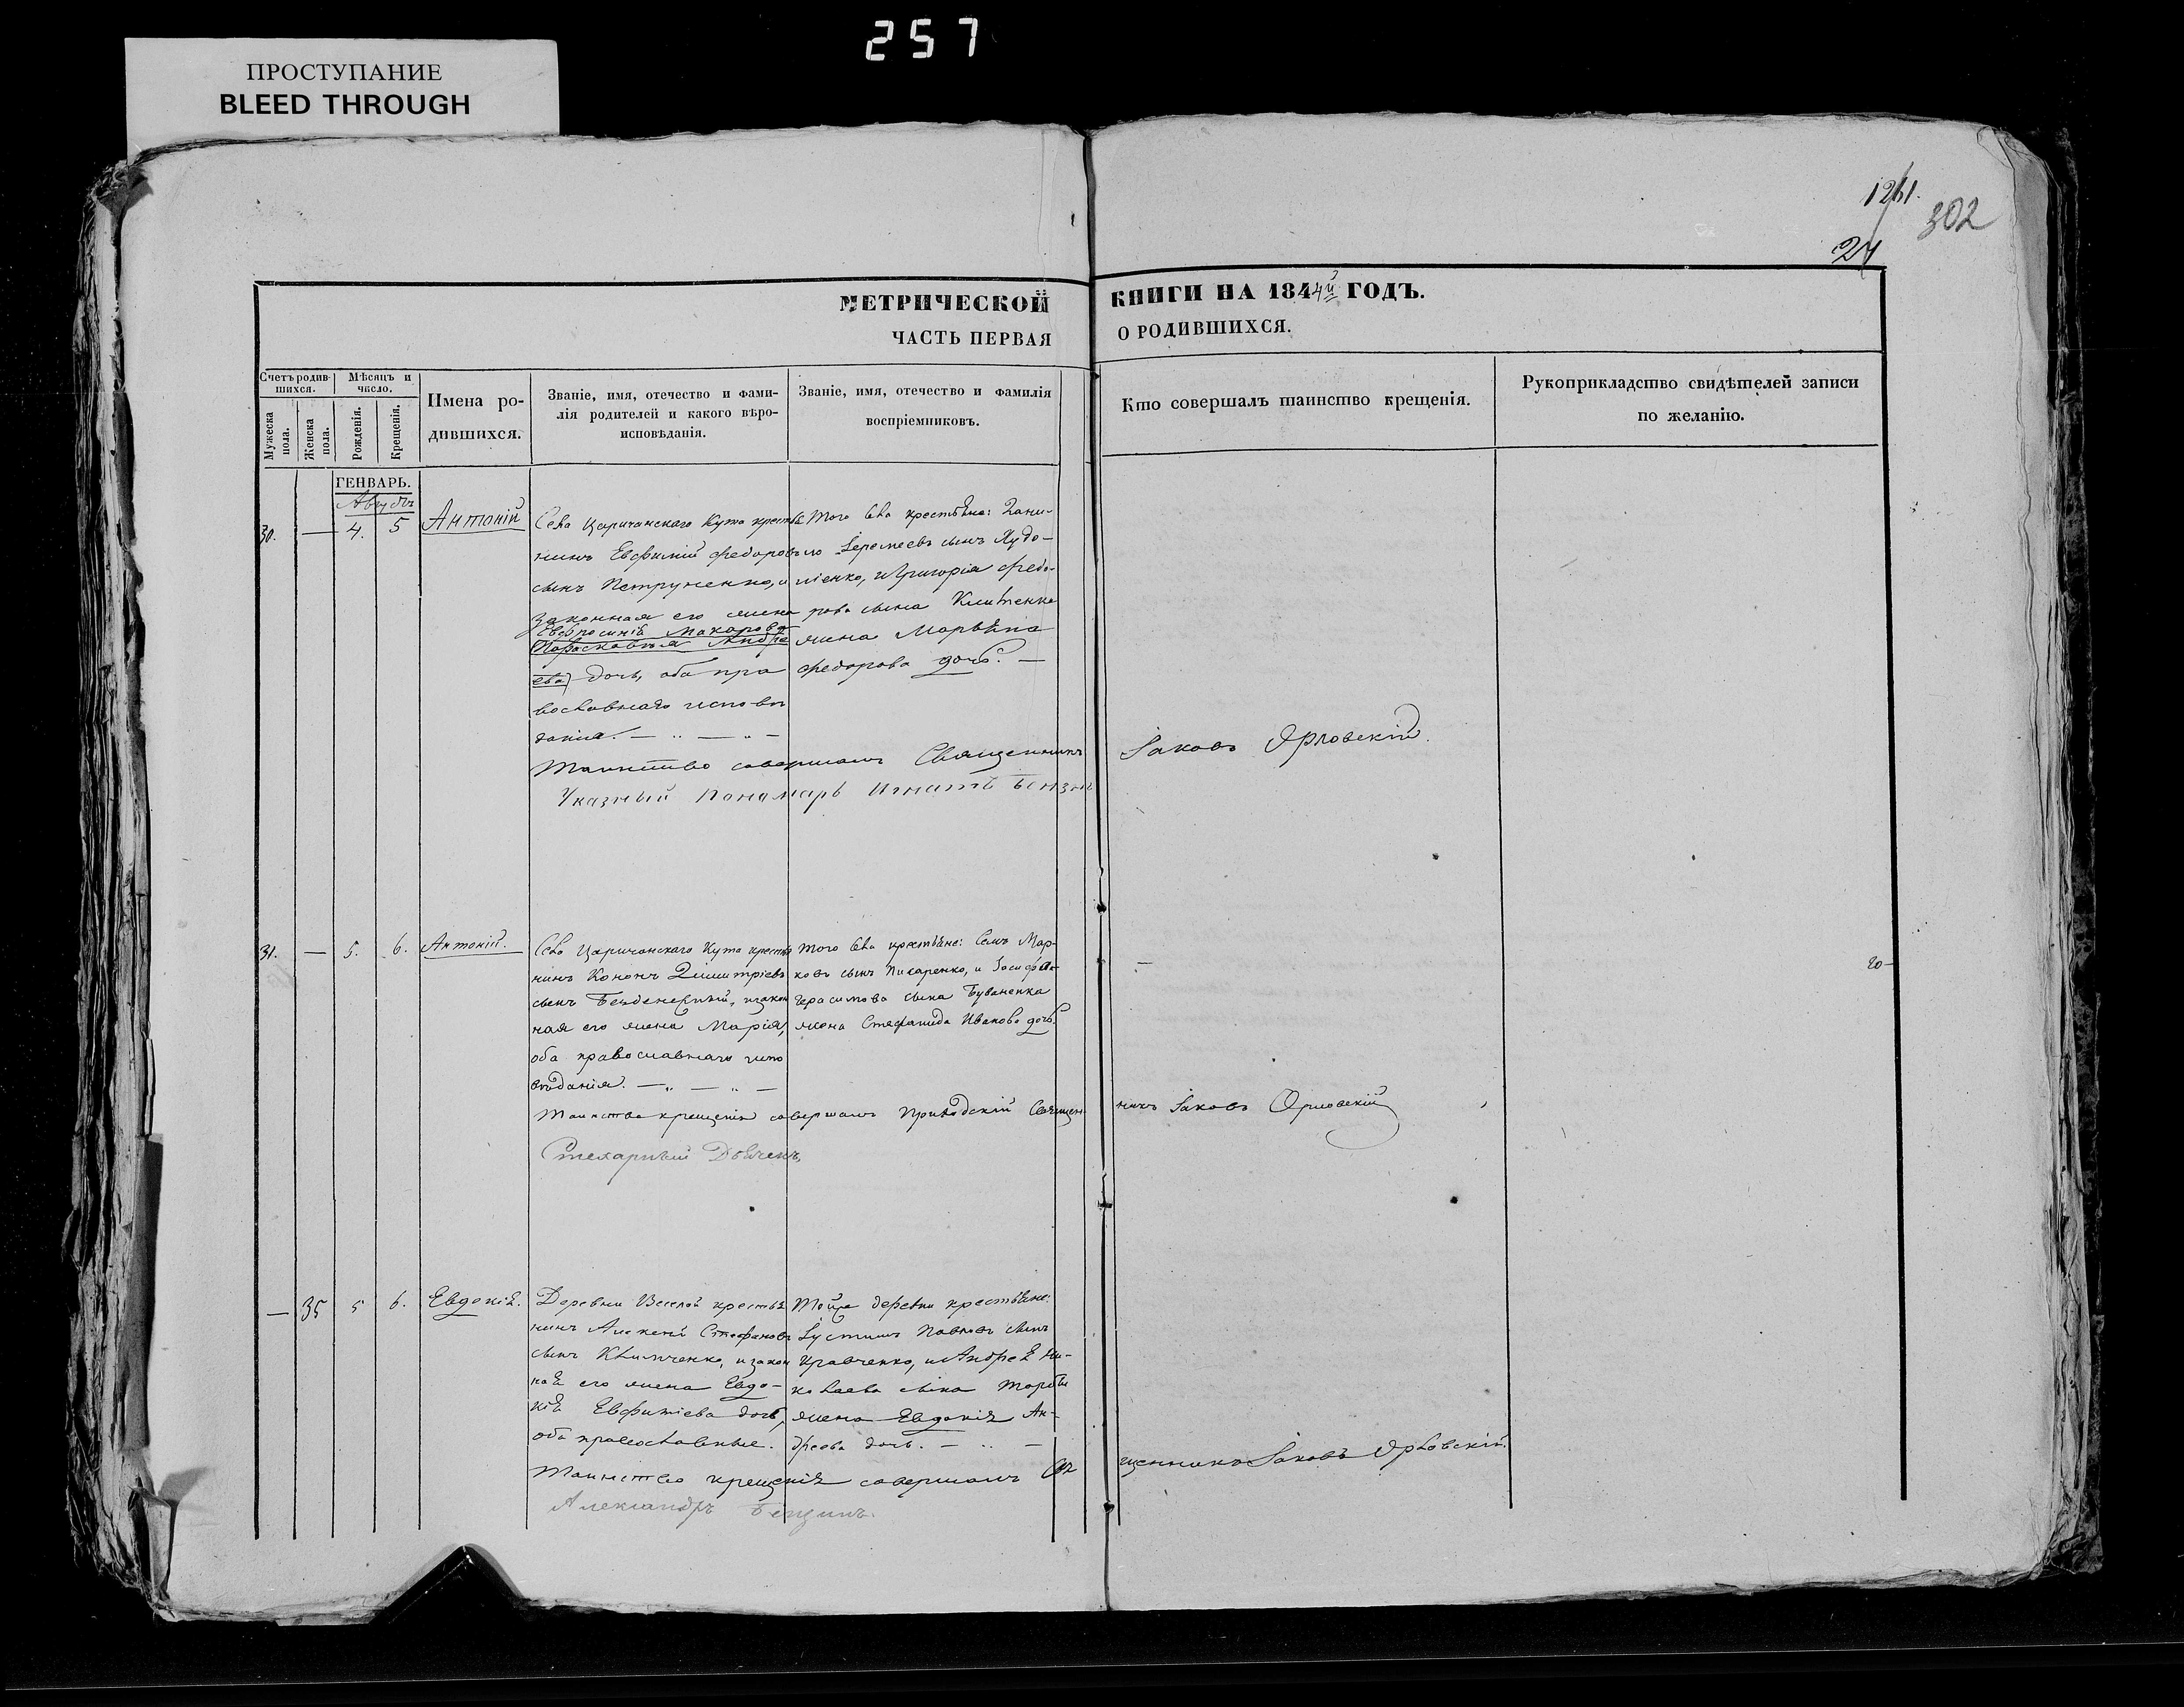 257
ПРОСТУПАНИЕ
BLEED THROUGH
1261.
302
24
МЕТРИЧЕСКОЙ КНИГИ НА 1844й ГОДЪ.
ЧАСТЬ ПЕРВАЯ О РОДИВШИХСЯ.
Счетъ родив-
шихся.
Мѣсяцъ и
число.
Мужеска
пола.
Женска
пола.
Рожденія.
Крещенія.
Имена ро-
дившихся.
Званіе, имя, отечество и фами-
лія родителей и какого вѣро-
исповѣданія.
Званіе, имя, отечество и фамилія
воспріемниковъ.
Кто совершалъ таинство крещенія.
Рукоприкладство свидѣтелей записи
по желанію.
ГЕНВАРЬ.
Августъ
30. — 4. 5 Антоній
Села Царичанскаго Кута крестья
нинъ Евфимій Федоровъ
сынъ Петруненко, и
законная его жена
Евфросинія Макарова
Параскевія Андре
ева) дочь, оба пра
вославнаго исповѣ
данія. — „ — „ —
Того Села крестьяне: Дани-
ло Іеремеевъ сынъ
и Григорія Федо-
рова сына
жена Марѳина
Федорова дочь. —
Таинство совершалъ Священникъ Іаковъ Орловскій.
Указный Пономарь Игнатъ
31. — 5. 6. Антоній.
Села Царичанскаго Кута крестья
нинъ Кононъ Димитріевъ
сынъ и закон
ная его жена Марія,
оба православнаго испо
вѣданія. — „ — „ —
Того Села крестьяне: Мар-
ковъ сынъ Писаренко, и
Герасимова сына Буваненка
жена Стефанида Иванова дочь.
—
20-
Таинство крещенія совершалъ Приходскій Священ никъ Іаковъ Орловскій
— 35 5 6. Евдокія.
Деревни Веселой крестья
нинъ Алексей Стефановъ
сынъ Климченко, и закон
ная его жена Евдо-
кія Евфиміева дочь,
оба православные.
Тойже деревни крестьяне:
Іустинъ Павловъ сынъ
Кравченко, и Андрея Ни-
колаева сына
жена Евдокія Ан-
дреева дочь. — „ —
Таинство крещенія совершалъ Свя щенникъ Іаковъ Орловскій.
Александръ